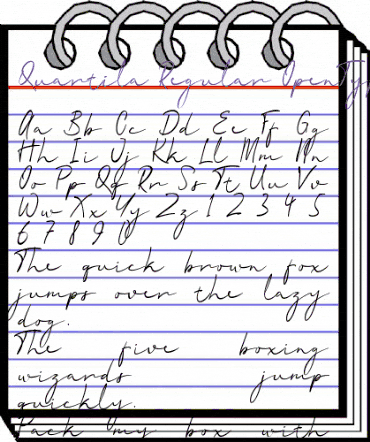 Quartila Regular OpenTyp
Aa Bb Cc Dd Ee Ff Gg
Hh Ii Jj Kk Ll Mm Nn
Oo Pp Qq Rr Ss Tt Uu Vv
Ww Xx Yy Zz 1 2 3 4 5
6 7 8 9 0
The quick brown fox
jumps over the lazy
dog.
The five boxing
wizards jump
quickly.
Pack my box with